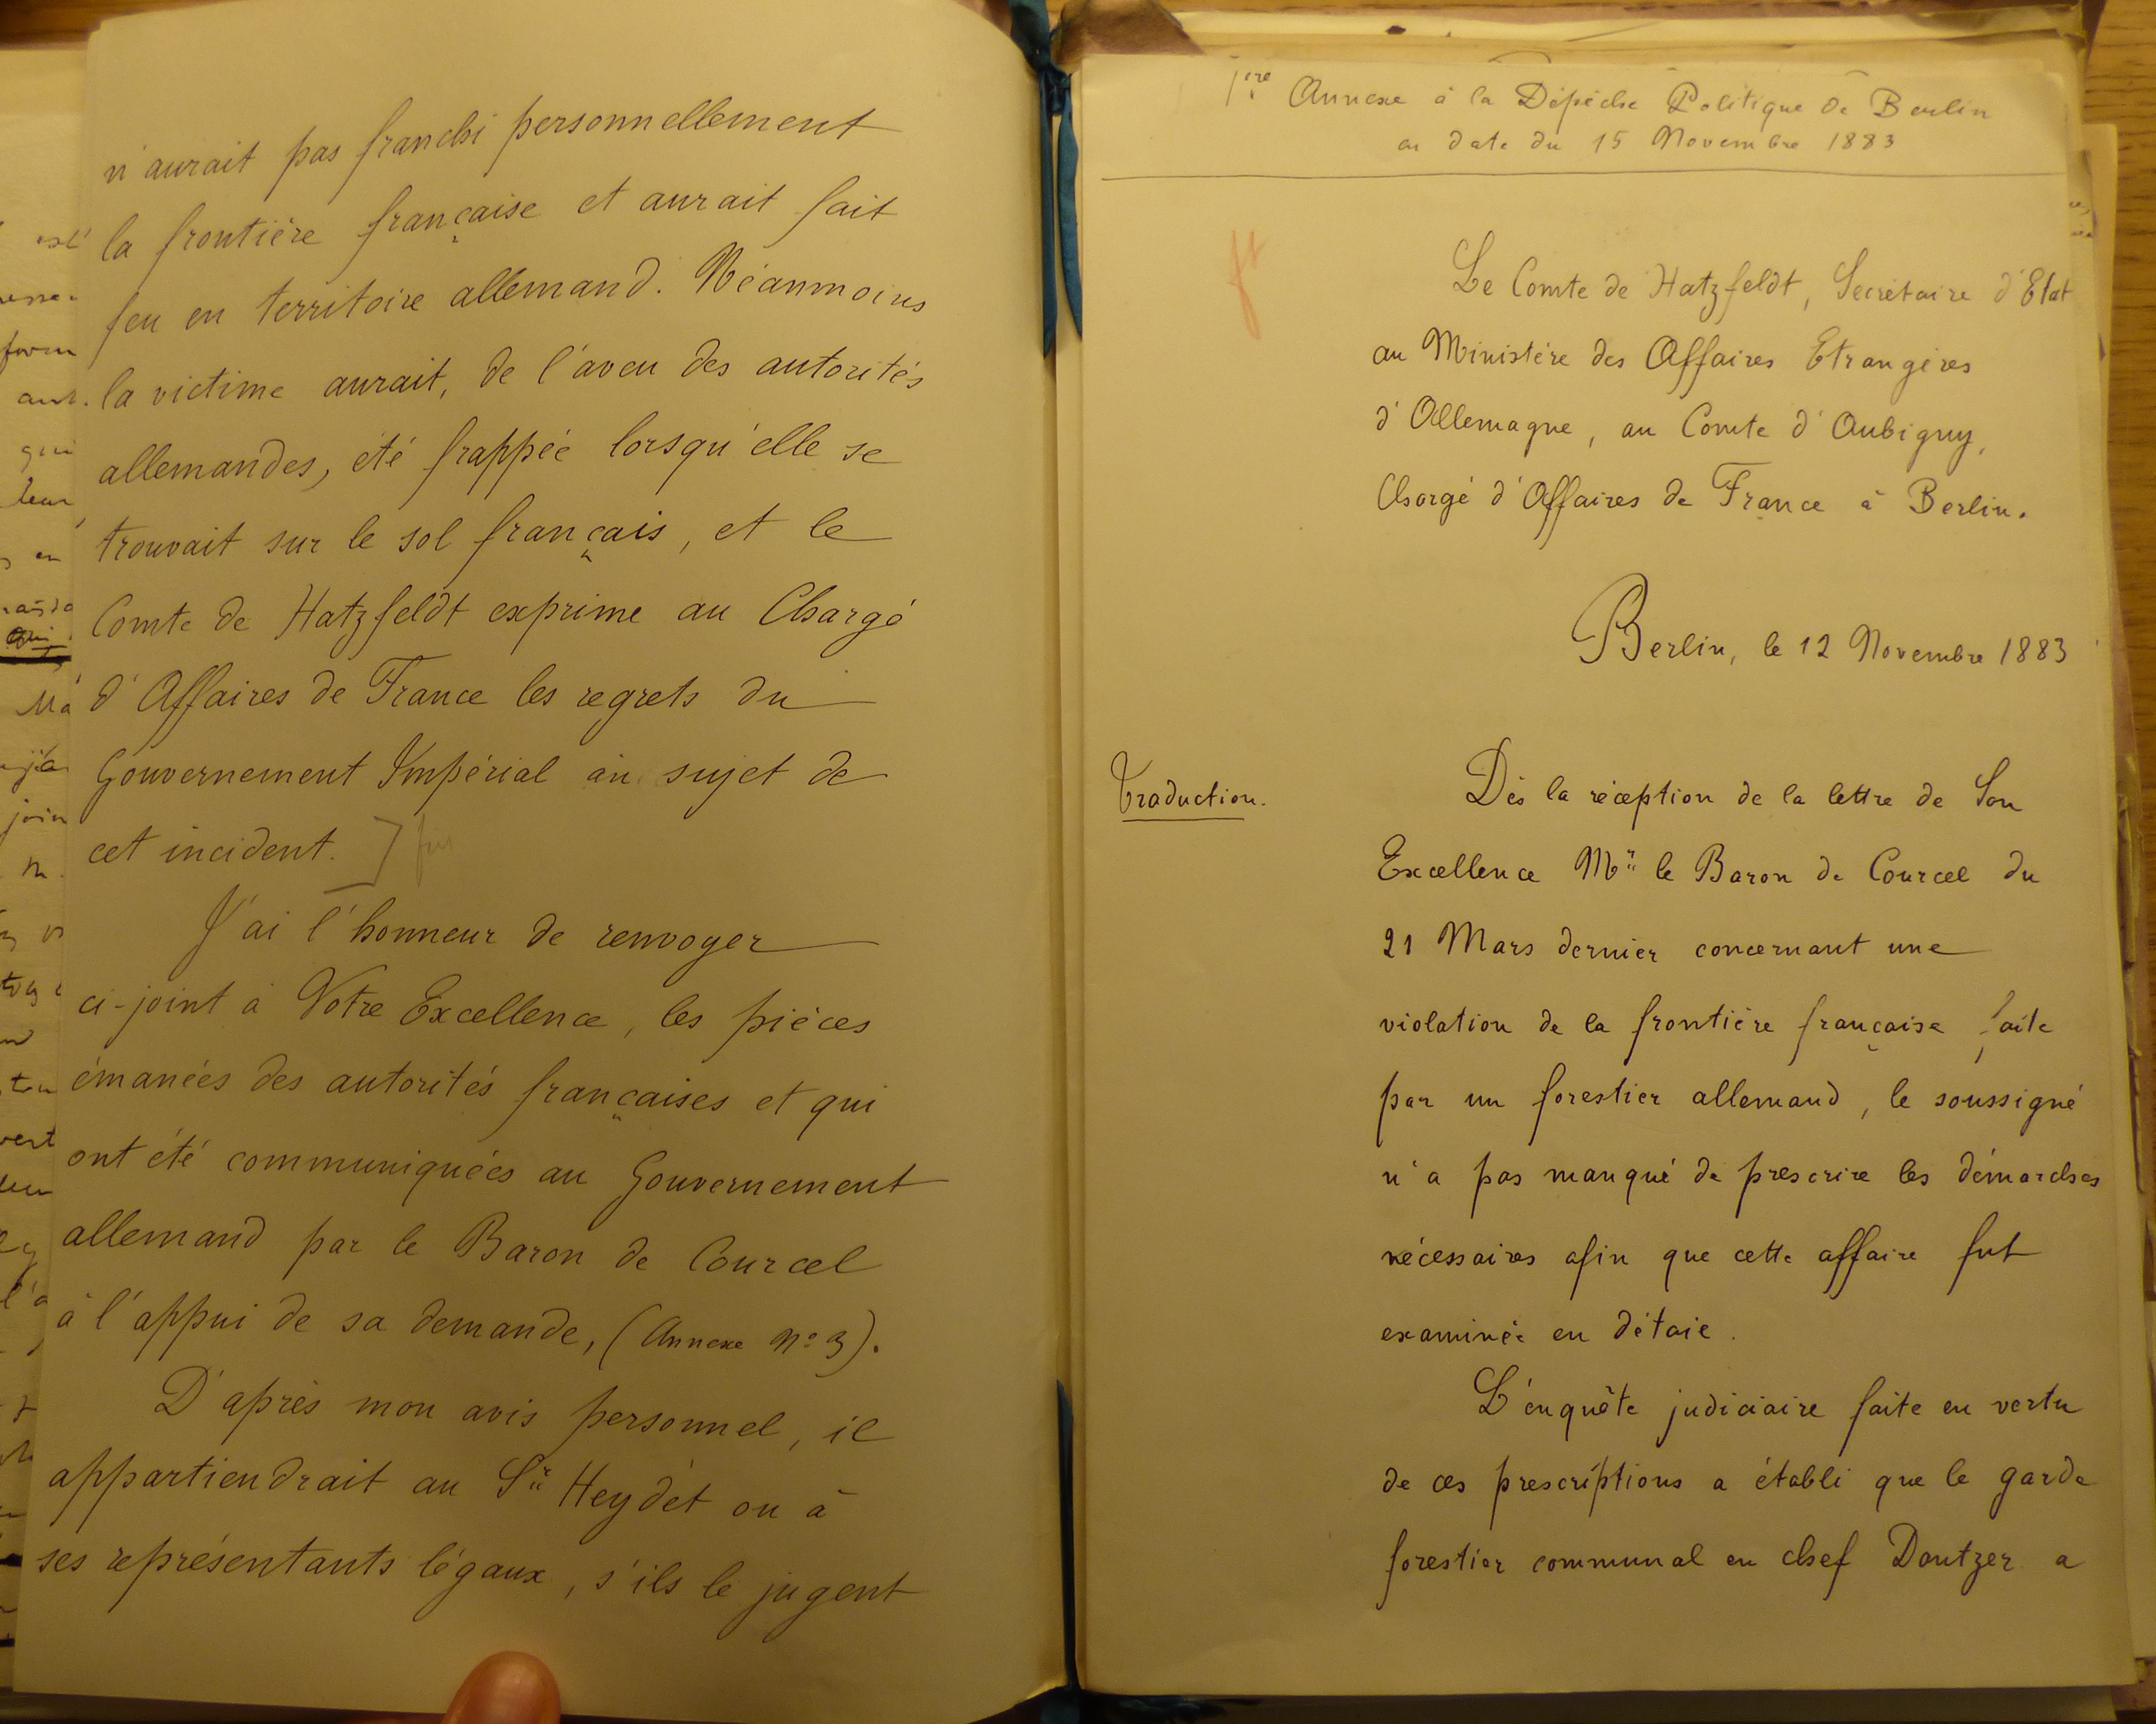 n'aurait pas franchi personnellement
la frontière française et aurait fait
feu en territoire allemand. Néanmoins
la victime aurait, de l'aveu des autorités
allemandes, été frappée lorsqu'elle se
trouvait sur le sol français, et le
Comte de Hatzfeldt exprime au Chargé
d'Affaires de France les regrets du
Gouvernement Impérial au sujet de
cet incident.
J'ai l'honneur de renvoyer
ci-joint à Votre Excellence, les pièces
émanées des autorités françaises et qui
ont été communiquées au Gouvernement
allemand par le Baron de Courcel
à l'appui de sa demande, (Annexe No 3).
D'après mon avis personnel, il
appartiendrait au Sr Heydet ou à
ses représentants légaux, s'ils le jugent
1ère Annexe à la Dépêche Politique de Berlin
en date du 15 Novembre 1883
Le Comte de Hatzfeldt, Secrétaire d'Etat
au Ministère des Affaires Etrangères
d'Allemagne, au Comte d'Aubigny,
Chargé d'Affaires de France à Berlin.
Berlin, le 12 Novembre 1883
Traduction.
Dès la réception de la lettre de Son
Excellence Mr le Baron de Courcel du
21 Mars dernier concernant une
violation de la frontière française faite
par un forestier allemand, le soussigné
n'a pas manqué de prescrire les démarches
nécessaires afin que cette affaire fut
examinée en détail.
L'enquête judiciaire faite en vertu
de ces prescriptions a établi que le garde
forestier communal en chef Dautzer a